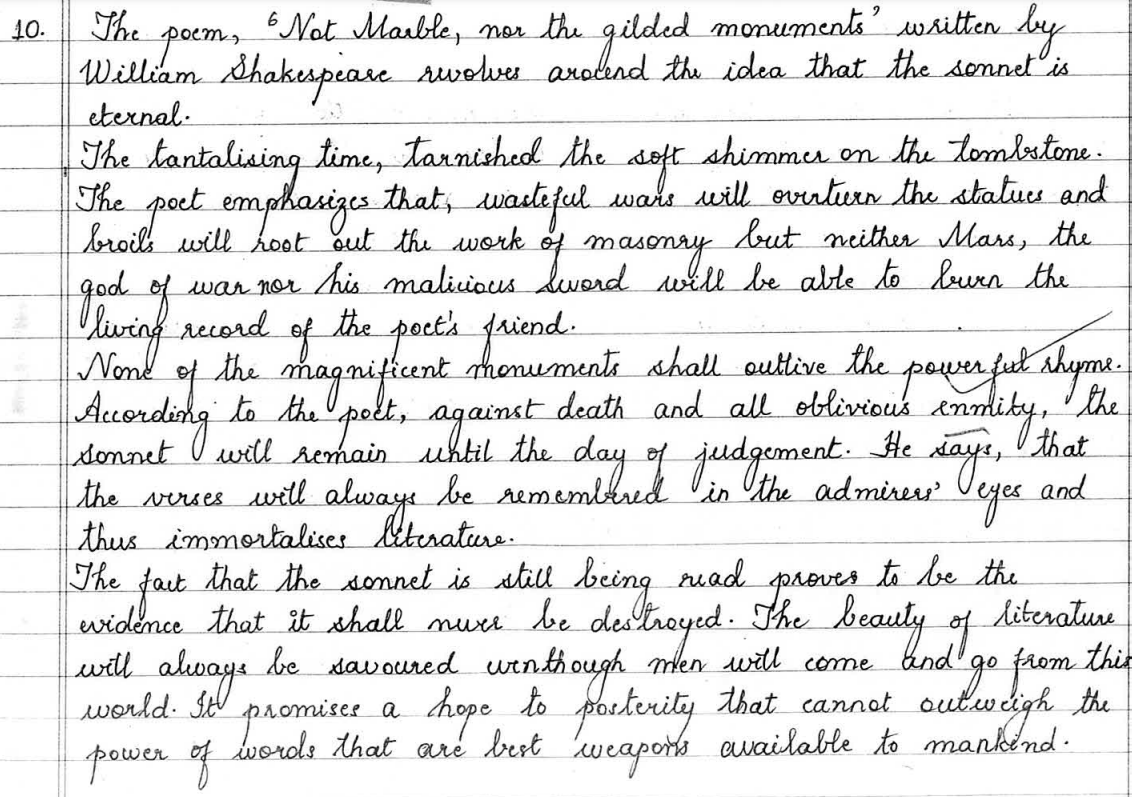 10. The poem, 'Not Marble, nor the gilded monuments' written by
William Shakespeare revolves around the idea that the sonnet is
eternal.
The tantalising time, tarnished the soft shimmer on the tombstone.
The poet emphasizes that, wasteful wars will overturn the statues and
broils will root out the work of masonry but neither Mars, the
god of war nor his malicious sword will be able to burn the
living record of the poet's friend.
None of the magnificent monuments shall outlive the powerful rhyme.
According to the poet, against death and all oblivious enmity, the
sonnet will remain until the day of judgement. He says, that
the verses will always be remembered in the admirers' eyes and
thus immortalises literature.
The fact that the sonnet is still being read proves to be the
evidence that it shall never be destroyed. The beauty of literature
will always be savoured eventhough men will come and go from this
world. It promises a hope to posterity that cannot outweigh the
power of words that are best weapons available to mankind.